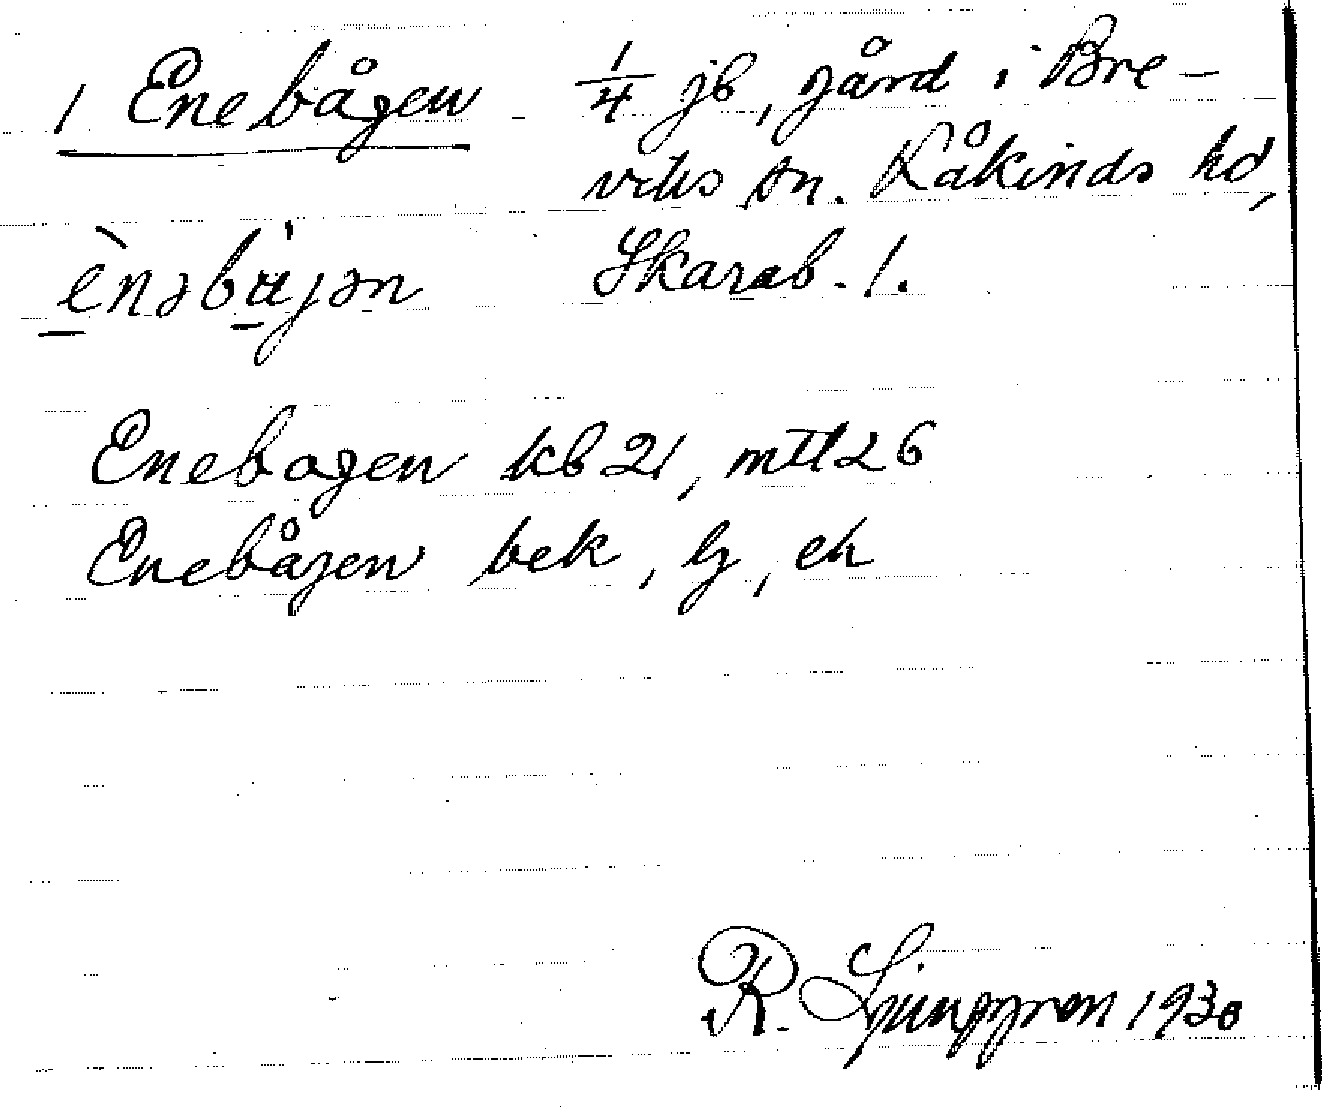 1 Enebågen 1/4 jb, gård i Bre-
viks sn. Kåkinds hd,
Skarab. l.
Enebagen kb 21, mtl 26
Enebågen bek, lj, ek
R. Ljunggren 1930